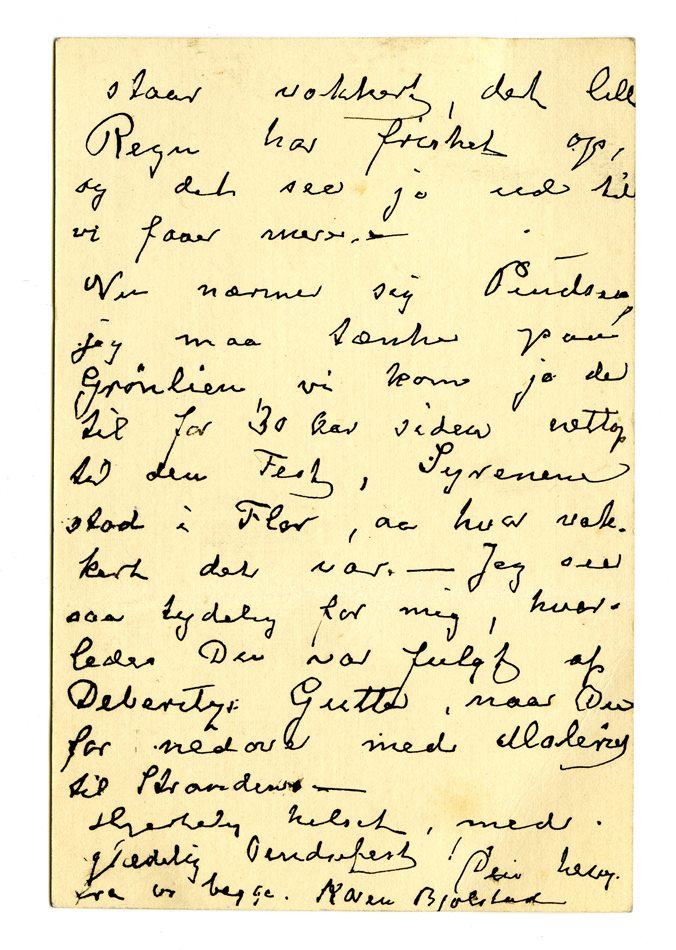 staar vakkert, det lille
Regn har frisket op,
og det seer jo ud til
vi faaer mere. —
Nu nærmer sig Pindsen,
jeg maa tænke paa
Grönlien, vi kom jo der
til for 30 Aar siden nettop
til den Fest, Syrenene
stod i Flor, aa hvor vak-
kert det var. — Jeg seer
saa tydelig for mig, hvor-
ledes Du var fulgt af
Gutter, naar Du
for nedover med Maleriet
til Stranden —
Hjertelig hilset, med
glædelig Pindsefest!
fra vi begge. Karen Bjølstad